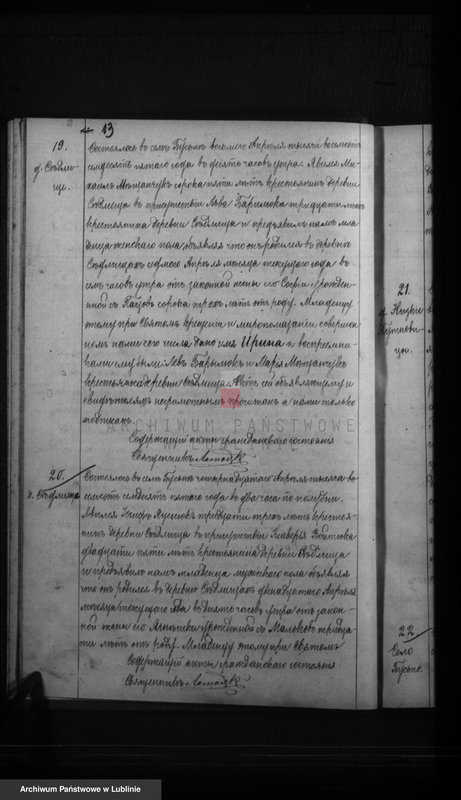 13
19.
д. Сѣдли-
ще.
Состоялось въ селѣ восьмого Апрѣля тысяча восемсотъ
семдесятъ пятаго года въ десять часовъ утра. Явился Ми-
хаилъ сорока пяти лѣтъ крестьянинъ деревни
Сѣдлища въ присутствіи Льва тридцати лѣтъ
крестьянина деревни Сѣдлища и предъявилъ намъ мла
денца женскаго пола объявляя что онъ родился въ деревнѣ
Сѣдлищахъ седмого Апрѣля мѣсяца текущаго года въ
семъ часовъ утра отъ законной жены его Софіи урожден-
ной съ сорока трехъ лѣтъ отъ роду. Младенцу
этому при Святомъ крещеніи и миропомазаніи совершен-
номъ нами сего числа дано имя Ирина а воспріемни-
ками ему были: Левъ и Марія
крестьяне деревни Сѣдлища. Актъ сей объявляющему и
свидѣтелямъ неграмотнымъ прочитанъ а нами только
подписанъ.
Содержащій акты гражданскаго состоянія
Священникъ
20.
д. Сѣдлище
Состоялось въ селѣ четырнадцатаго Апрѣля тысяча во-
семсотъ семдесятъ пятаго года въ два часа по полудни.
Явился Іосифъ тридцати трехъ лѣтъ крестья-
нинъ деревни Сѣдлища въ присутствіи Ксаверія
двадцати пяти лѣтъ крестьянина деревни Сѣдлища
и предъявилъ намъ младенца мужескаго пола объявляя
что онъ родился въ деревнѣ Сѣдлищахъ двенадцатаго Апрѣля
мѣсяца текущаго года въ девять часовъ утра отъ закон-
ной жены его урожденной съ тридца
ти лѣтъ отъ роду. Младенцу этому при Святомъ
Содержащій акты гражданскаго состоянія
Священникъ
21.
22
Село
ARCHIWUM PAŃSTWOWE
W LUBLINIE
Archiwum Państwowe w Lublinie